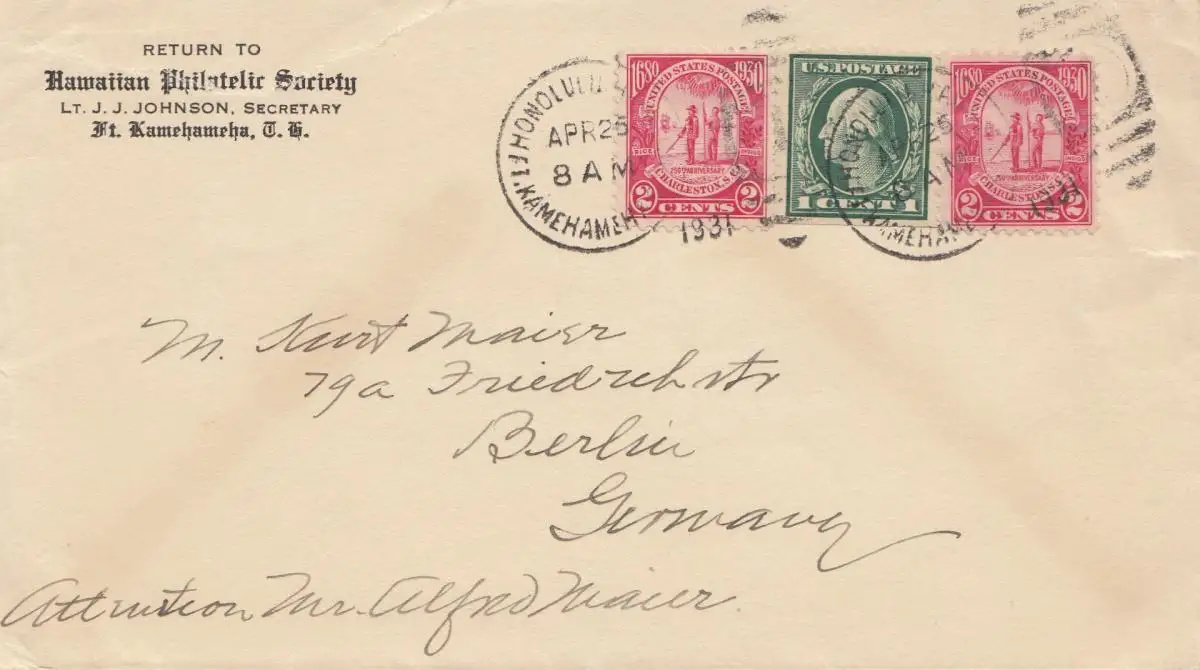 RETURN TO
Hawaiian Philatelic Society
LT. J. J. JOHNSON, SECRETARY
Ft. Kamehameha, T. H.
HONOLULU
APR 26
8 AM
FT. KAMEHAMEH
1931
1680 1930
UNITED STATES POSTAGE
RICE INDIGO
250TH ANNIVERSARY
CHARLESTON, S.C.
2 CENTS 2
U.S. POSTAGE
1 CENT 1
1680 1930
UNITED STATES POSTAGE
RICE INDIGO
250TH ANNIVERSARY
CHARLESTON, S.C.
2 CENTS 2
HONOL
26
AM
KAMEHAM
1931
M. Kurt Maier
79a Friedrchstr
Berlin
Germany
Attention Mr. Alfred Maier.